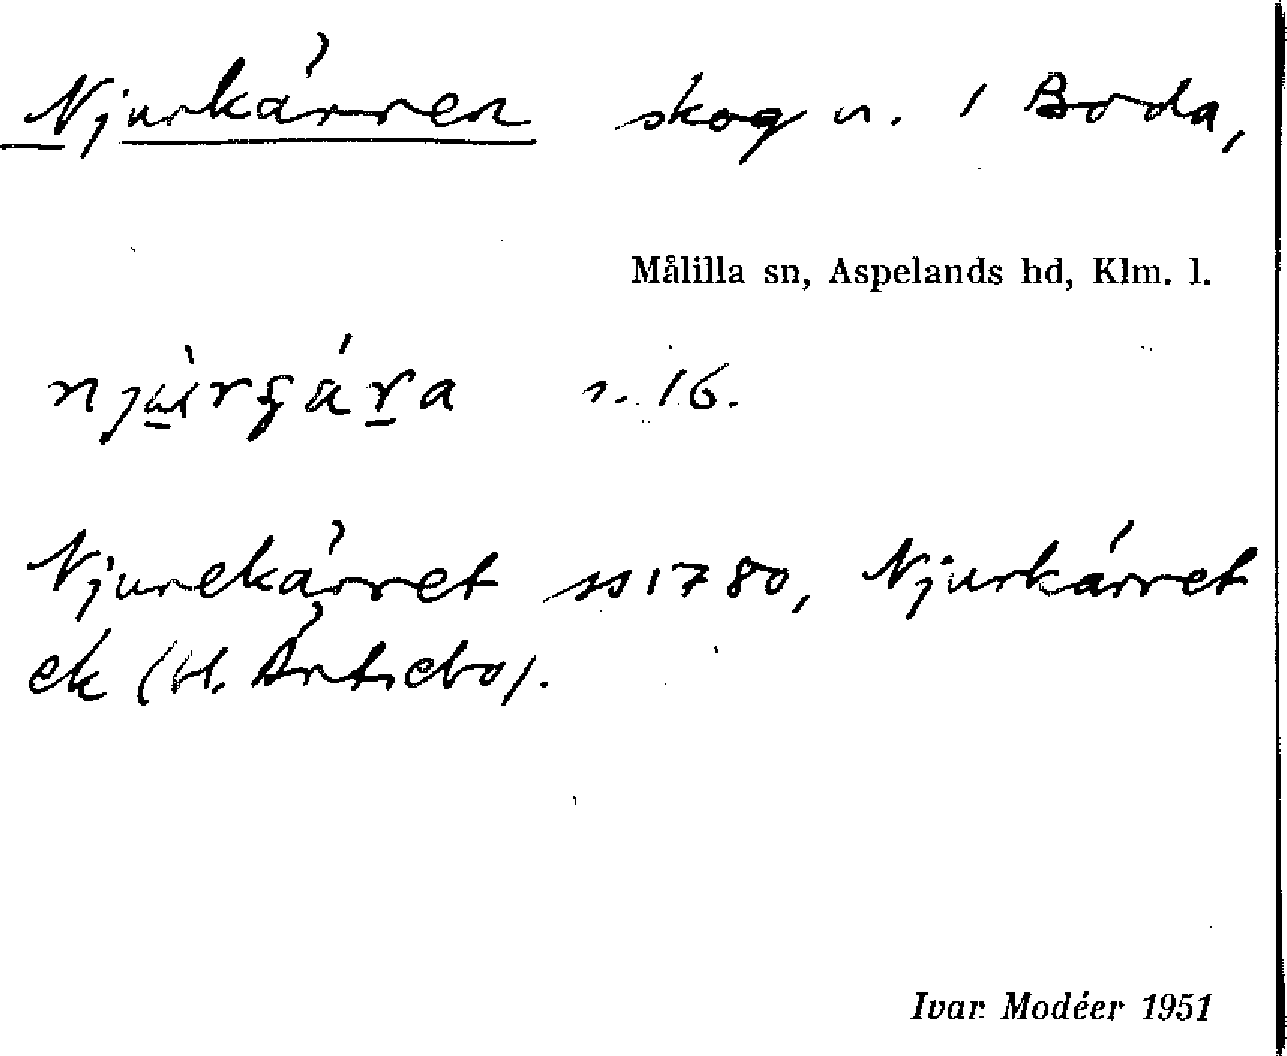 Njurkärren skog n. i Boda,
Målilla sn, Aspelands hd, Klm. l.
n. 16.
Njurekärret ss 1780, Njurkärret
ek (bl. Äntsebo).
Ivar Modéer 1951